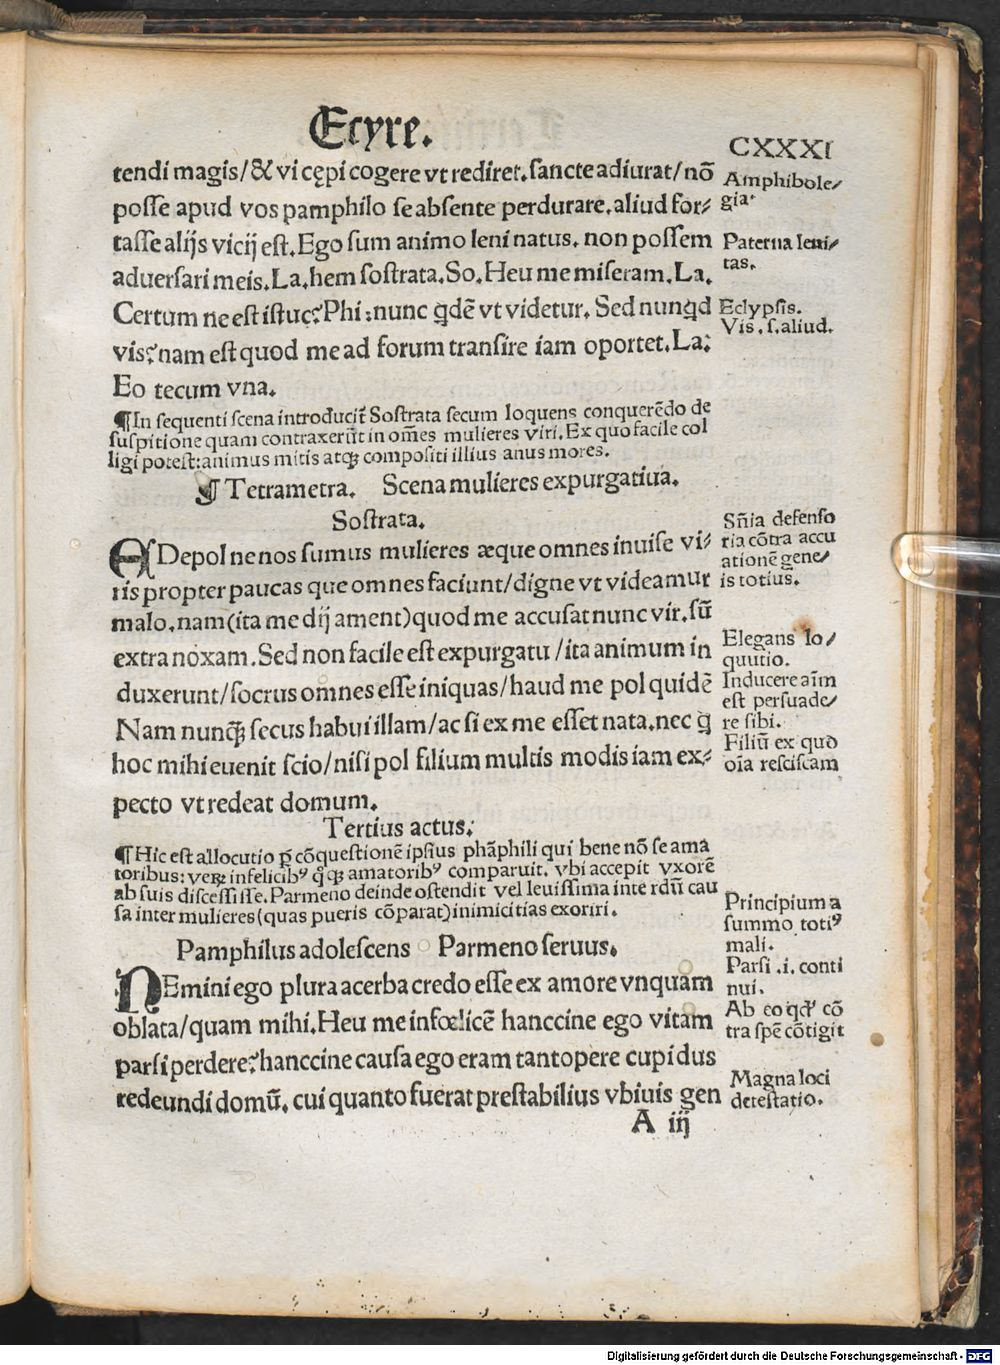 Ecyre.
CXXXI
tendi magis/& vi cępi cogere vt rediret. sancte adiurat/nõ
posse apud vos pamphilo se absente perdurare. aliud for⸗
tasse alijs vicij est. Ego sum animo leni natus. non possem
aduersari meis. La. hem sostrata. So. Heu me miseram. La.
Certum ne est istuc? Phi: nunc q̃dẽ vt videtur. Sed nunq̃d
vis? nam est quod me ad forum transire iam oportet. La:
Eo tecum vna.
¶In sequenti scena introducit̃ Sostrata secum loquens conquerẽdo de
suspitione quam contraxerũt in om̃es mulieres viri. Ex quo facile col
ligi potest: animus mitis atqꝫ compositi illius anus mores.
¶ Tetrametra. Scena mulieres expurgatiua.
Sostrata.
AEDepol ne nos sumus mulieres æque omnes inuise vi⸗
ris propter paucas que omnes faciunt/digne vt videamur
malo. nam (ita me dij ament) quod me accusat nunc vir. sũ
extra noxam. Sed non facile est expurgatu/ita animum in
duxerunt/socrus omnes esse iniquas/haud me pol quidẽ
Nam nunqꝫ̃ secus habui illam/ac si ex me esset nata. nec q̃
hoc mihi euenit scio/nisi pol filium multis modis iam ex⸗
pecto vt redeat domum.
Tertius actus.
¶Hic est allocutio p̃ cõquestionẽ ipsius phãphili qui bene nõ se ama
toribus: veꝝ infelicibꝰ q̃qꝫ amatoribꝰ comparuit. vbi accepit vxorẽ
ab suis discessisse. Parmeno deinde ostendit vel leuissima inte rdũ cau
sa inter mulieres (quas pueris cõparat) inimicitias exoriri.
Pamphilus adolescens Parmeno seruus.
NEmini ego plura acerba credo esse ex amore vnquam
oblata/quam mihi. Heu me infœlicẽ hanccine ego vitam
parsi perdere? hanccine causa ego eram tantopere cupidus
redeundi domũ. cui quanto fuerat prestabilius vbiuis gen
A iij
Amphibole⸗
gia.
Paterna leni⸗
tas.
Eclypsis.
Vis. s. aliud.
Sñia defenso
ria cõtra accu
ationẽ gene⸗
is totius.
Elegans lo⸗
quutio.
Inducere aĩm
est persuade⸗
re sibi.
Filiũ ex quo
oĩa resciscam
Principium a
summo totiꝰ
mali.
Parsi .i. conti
nui.
Ab eo qd' cõ
tra spẽ cõtigit
Magna loci
detestatio.
Digitalisierung gefördert durch die Deutsche Forschungsgemeinschaft - DFG